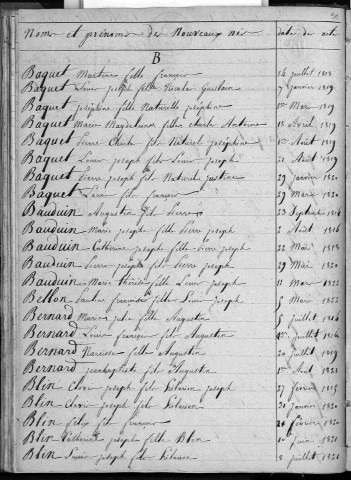 Noms et prénoms des Nouveaux nés date des actes
B
Baquet Martine fille françois 14 juillet 1813
Baquet Louis joseph fils Nicolas Guislain 7 janvier 1819
Baquet joséphine fille Naturelle joséphine 1er Mars 1819
Baquet Marie Magdeleine fille Charle Antoine 13 Avril 1819
Baquet Pierre Charle fils Naturel joséphine 1er Août 1819
Baquet Louis joseph fils Louis joseph Août 1819
Baquet Pierre joseph fils Naturel justine 29 janvier 1820
Baquet fils françois 29 Mars 1820
Bauduin Augustin fils Pierre 23 Septembre 1814
Bauduin Marie josephe fille Pierre joseph 2 Août 1816
Bauduin Catherine josephe fille Pierre joseph 22 Mars 1818
Bauduin Pierre joseph fils Pierre joseph 29 Mai 1820
Bauduin Marie Thérèse fille Louis joseph 11 Mars 1822
Bellon fille Louis joseph 5 Mars 1822
Bernard Marie julie fille Augustin 5 juillet 1816
Bernard Louis françois fils Augustin juillet 1816
Bernard Narcisse fils Augustin 20 juillet 1819
Bernard jeanbaptiste fils Augustin 1er Août 1821
Blin joseph fils joseph 27 février 1815
Blin joseph fils 31 janvier 1820
Blin félix fils françois 24 février 1820
Blin Catherine josephe fille Blin juin 1821
Blin joseph fils 8 juillet 1821